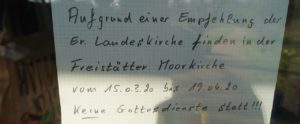 Aufgrund einer Empfehlung der
Ev. Landeskirche finden in der
Freistätter Moorkirche
vom 15.03.20 bis 19.04.20
Keine Gottesdienste statt!!!